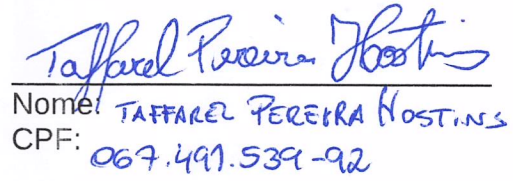 Taffarel Pereira Hostins
Nome: TAFFAREL PEREIRA HOSTINS
CPF: 067.491.539-92